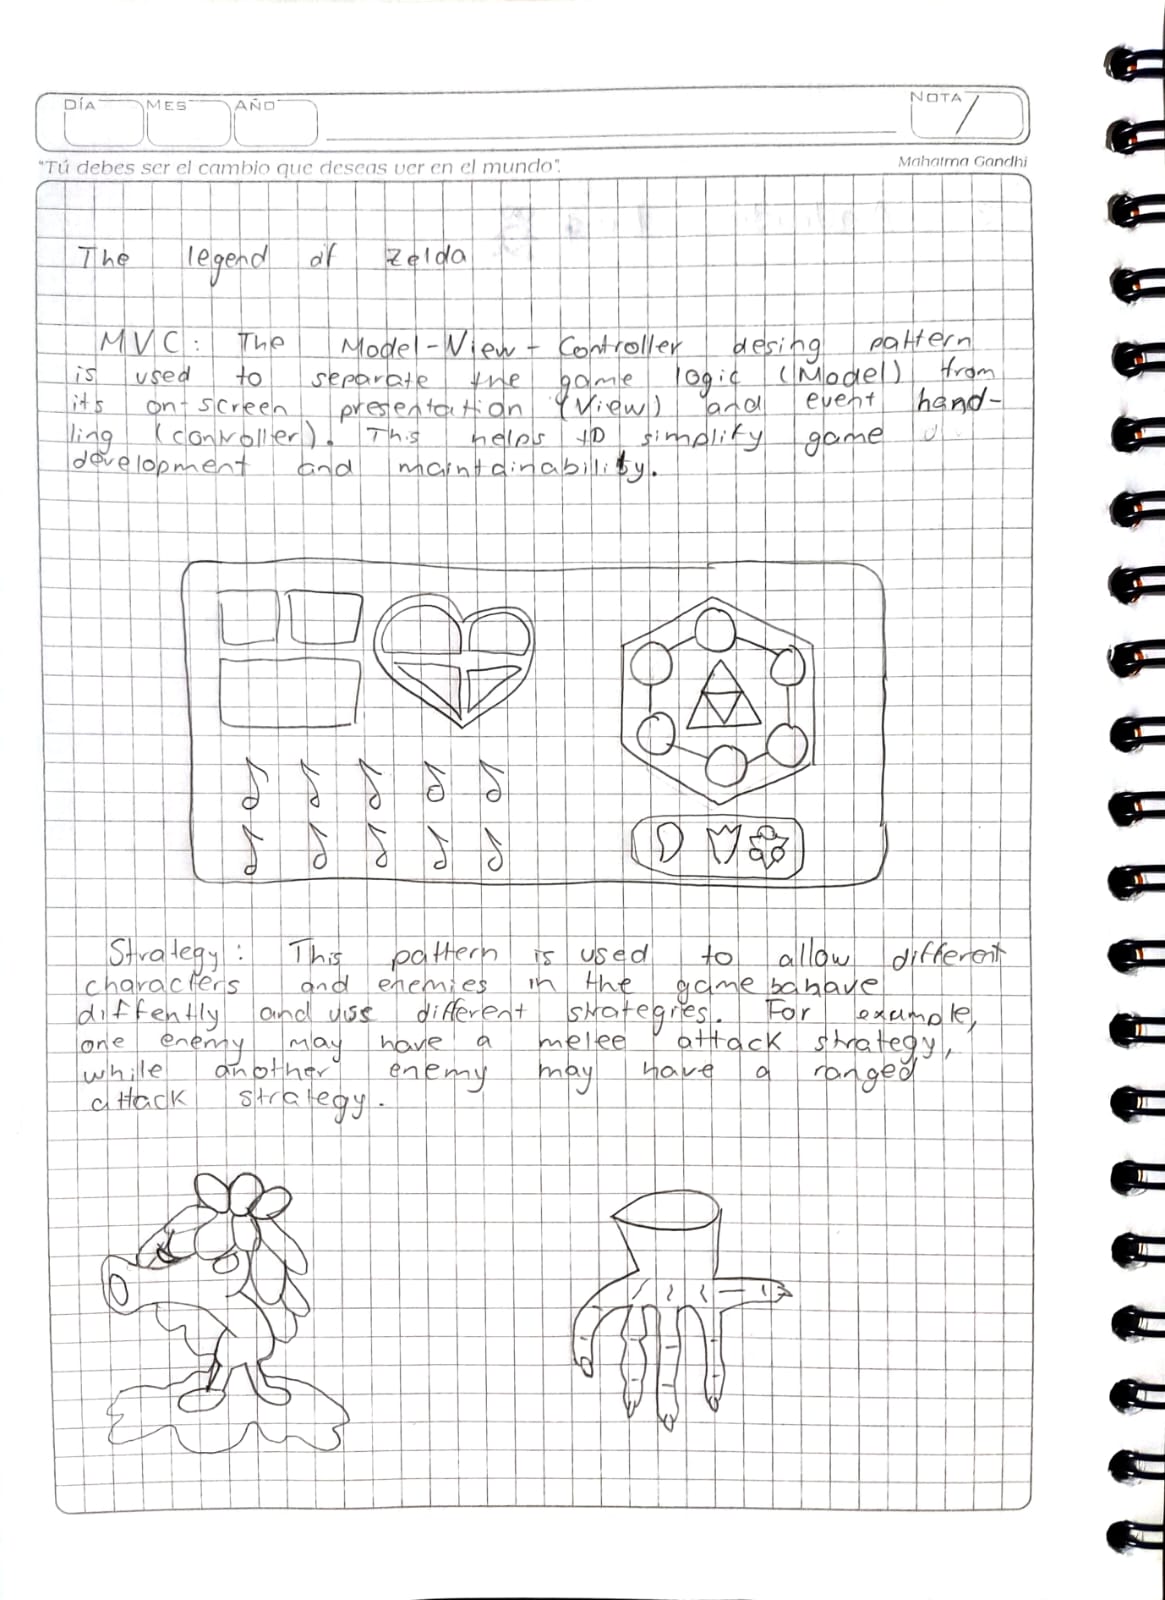 DÍA MES AÑO NOTA
"Tú debes ser el cambio que deseas ver en el mundo". Mahatma Gandhi
The legend of Zelda
MVC: The Model-View-Controller desing pattern
is used to separate the game logic (Model) from
its on-screen presentation (View) and event hand-
ling (controller). This helps to simplify game
development and maintainability.
Strategy: This pattern is used to allow different
characters and enemies in the game bahave
diffently and use different strategies. For example,
one enemy may have a melee attack strategy,
while another enemy may have a ranged
attack strategy.